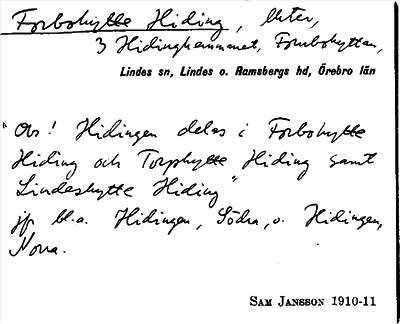 Forbohytte Hiding, äkter,
3 Hidinghemmanet, Fornbohyttan,
Lindes sn, Lindes o. Ramsbergs hd, Örebro län
"Obs! Hidingen delas i Forbohytte
Hiding och Torphytte Hiding samt
Lindeshytte Hiding"
jfr bl.a. Hidingen, Södra, o. Hidingen,
Norra.
SAM JANSSON 1910-11